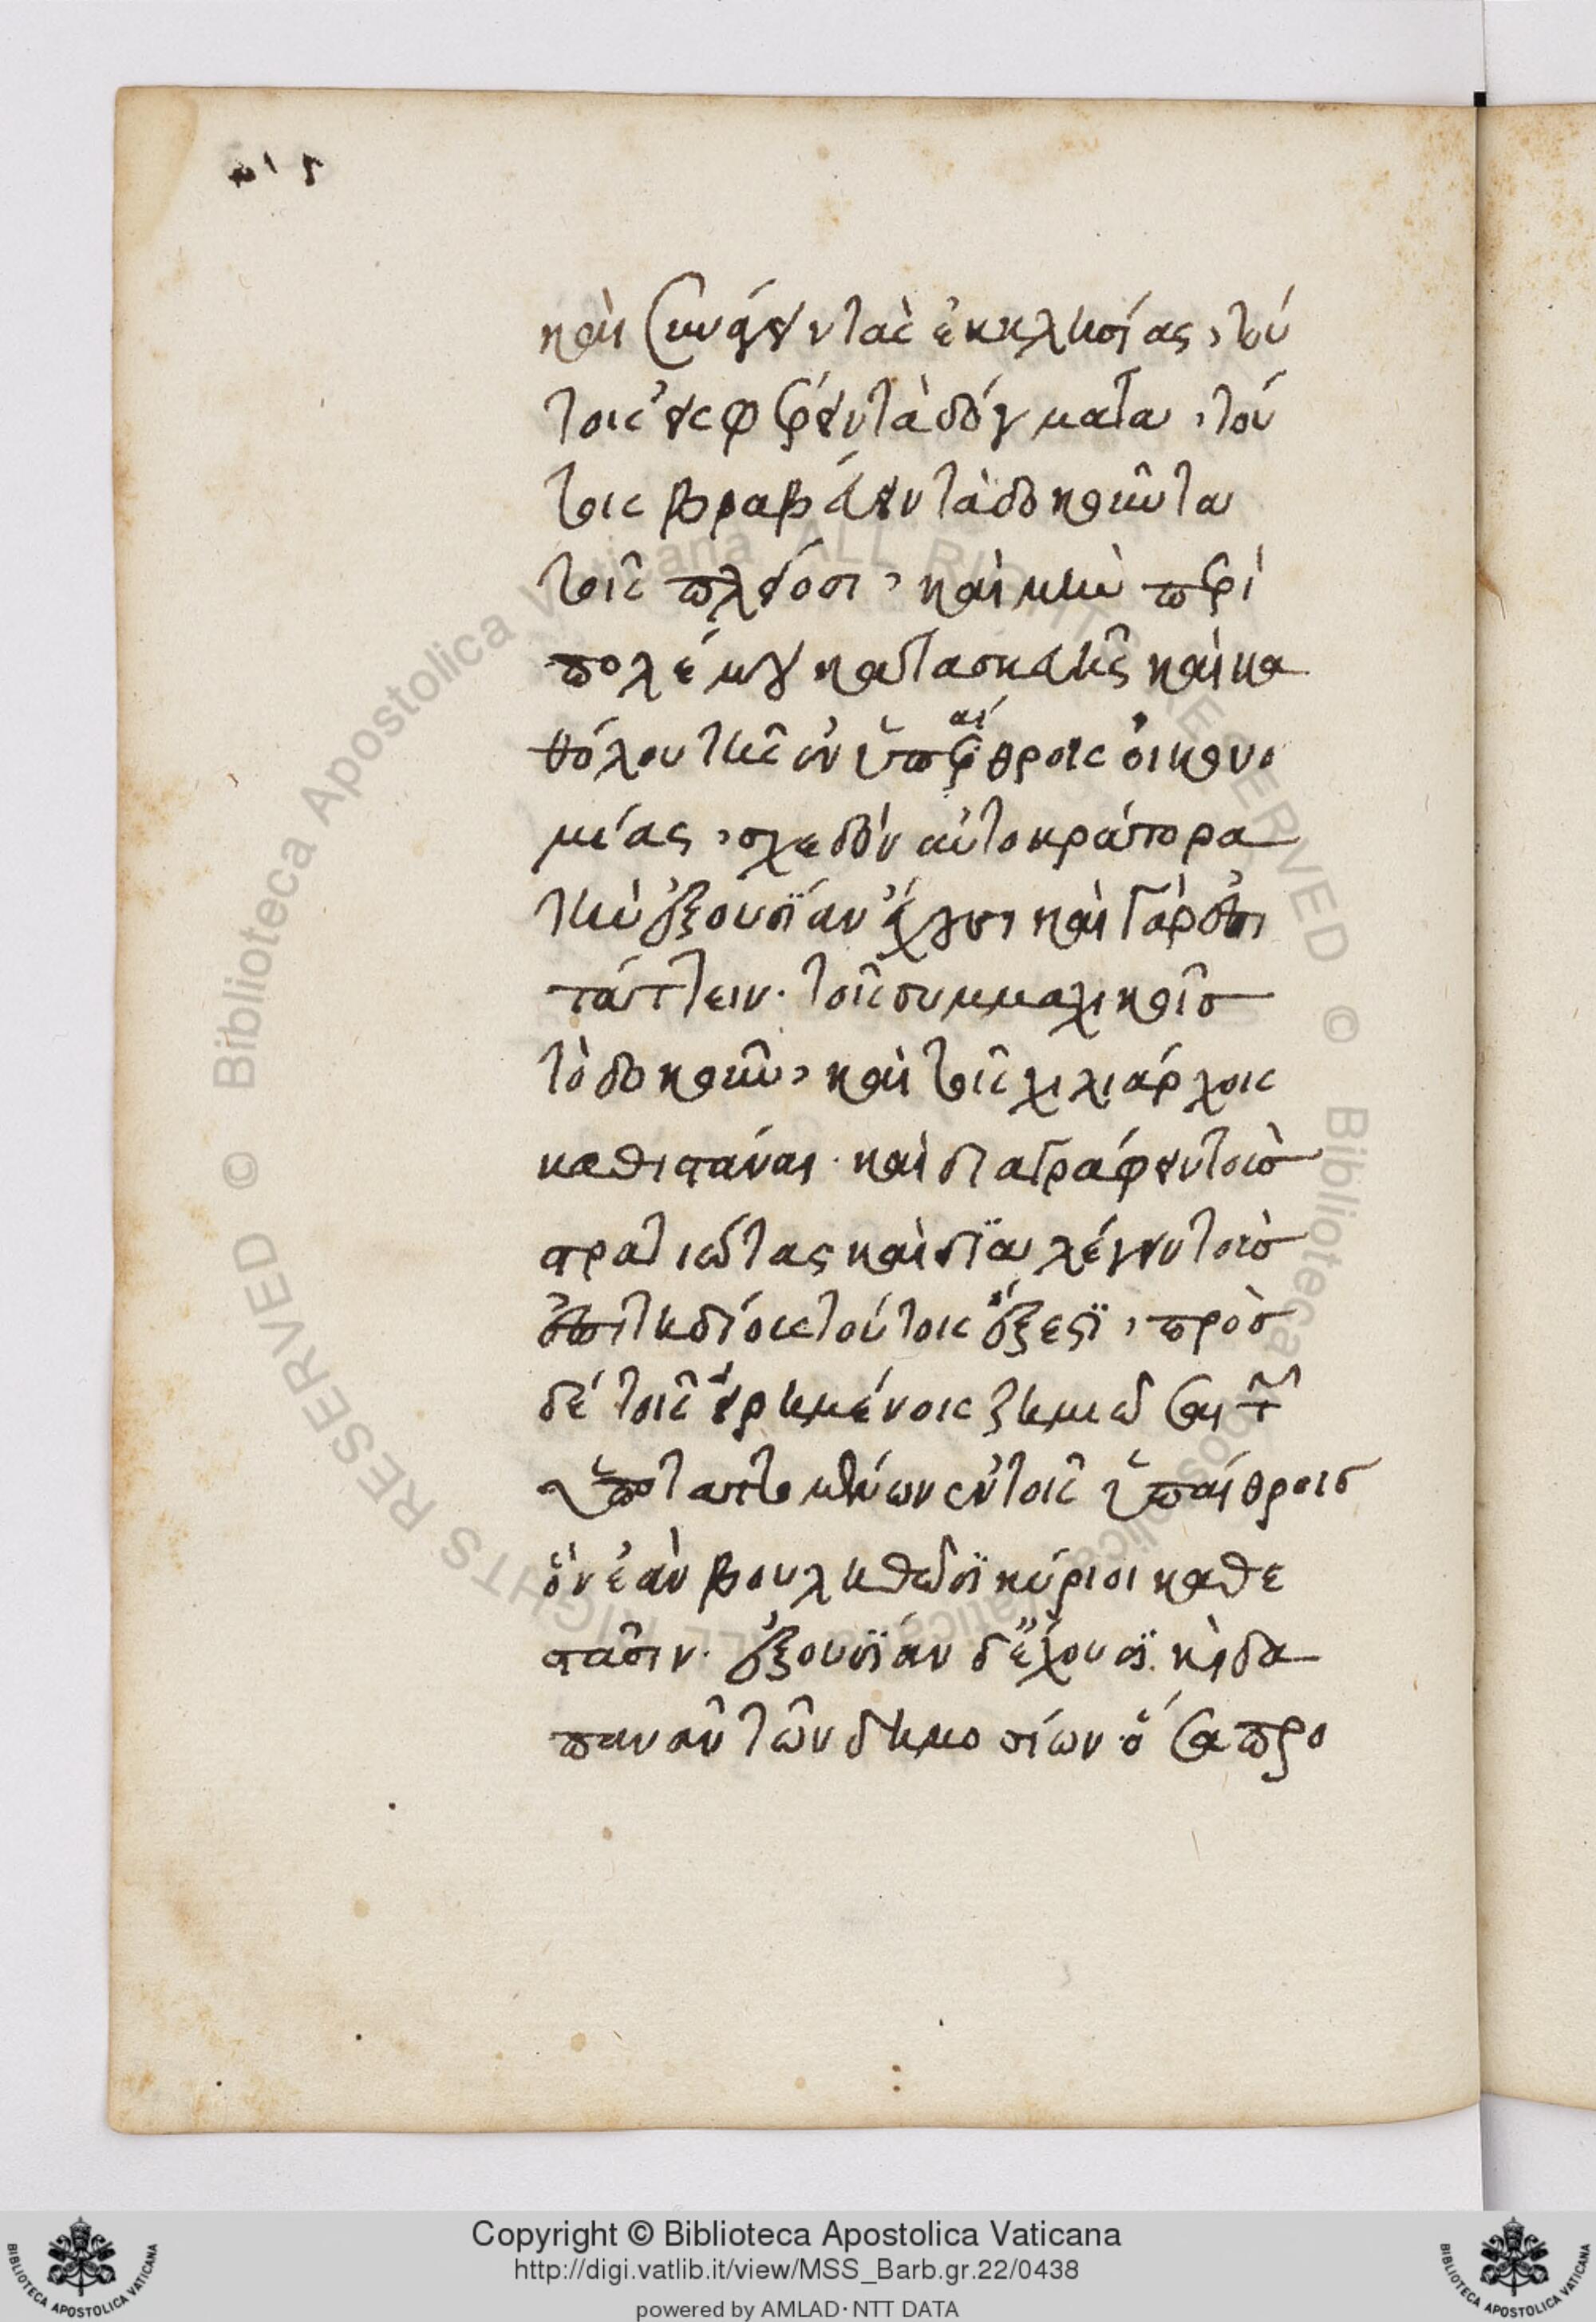 καὶ συνάγειν τὰς ἐκκλησίας, τού
τοις εἰσφέρειν τὰ δόγματα, τού
τοις βραβεύειν τὰ δοκοῦντα
τοῖς πλείοσι, καὶ μὴν περὶ
πολέμου κατασκευῆς καὶ κα
θόλου τῆς ἐν ὑπαίθροις οἰκονο
μίας, σχεδὸν αὐτοκράτορα
τὴν ἐξουσίαν ἔχουσι καὶ γὰρ ἐπι
τάττειν· τοῖς συμμαχικοῖς
τὸ δοκοῦν, καὶ τοῖς χιλιάρχοις
καθιστάναι· καὶ διαγράφειν τοὺς
στρατιώτας καὶ διαλέγειν τοὺς
ἐπιτηδείους τούτοις ἔξεστι, πρὸς
δὲ τοῖς εἰρημένοις ζημιῶσαι τῶν
ὑποταττομένων ἐν τοῖς ὑπαίθροις
ὃν ἐὰν βουληθῶσι κύριοι καθε
στᾶσιν· ἐξουσίαν δ' ἔχουσι καὶ δα
πανᾶν τῶν δημοσίων ὅσα προ
Copyright © Biblioteca Apostolica Vaticana
http://digi.vatlib.it/view/MSS_Barb.gr.22/0438
powered by AMLAD·NTT DATA